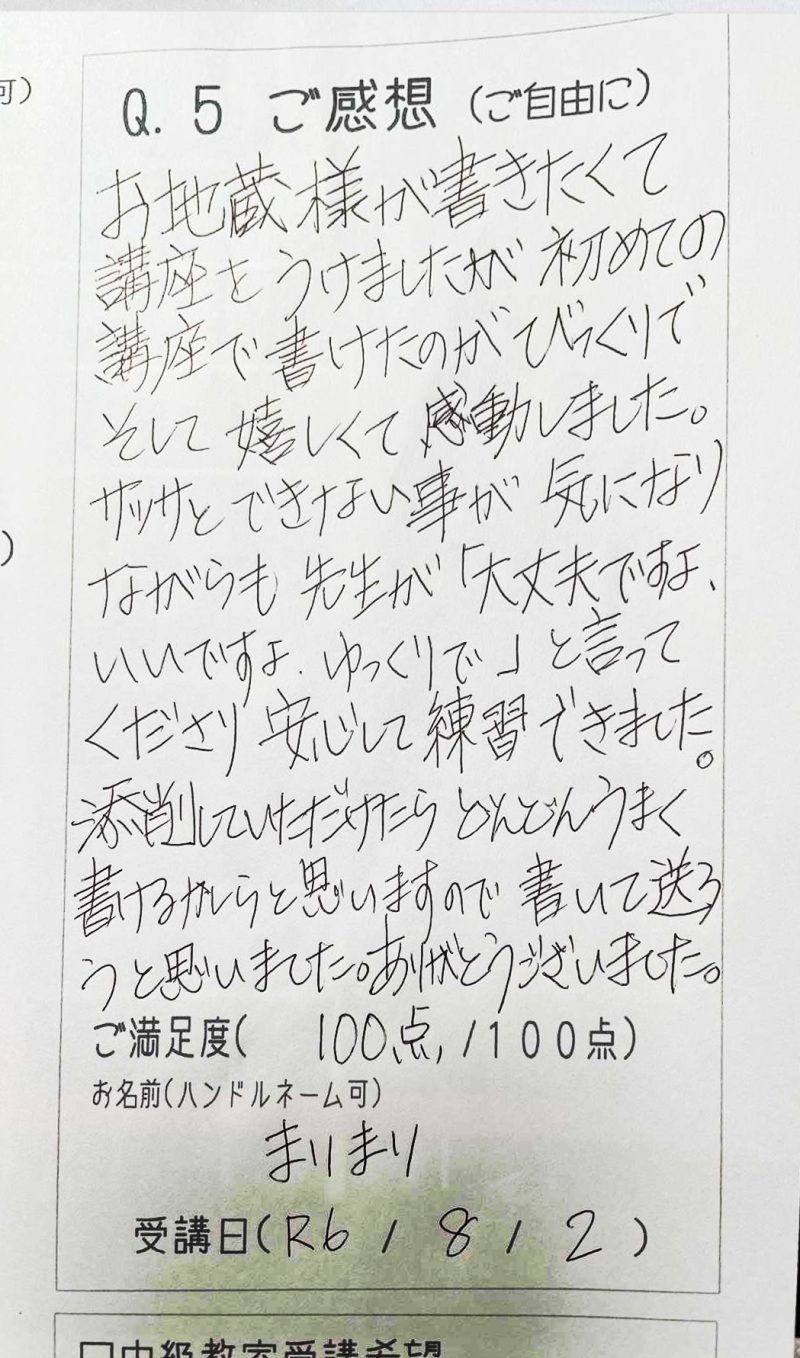 可)
Q.5 ご感想(ご自由に)
お地蔵様が書きたくて
講座をうけましたが初めての
講座で書けたのがびっくりで
そして嬉しくて感動しました。
ササッとできない事が気になり
ながらも先生が「大丈夫ですよ、
いいですよ、ゆっくりで」と言って
くださり安心して練習できました。
添削していただけたらどんどんうまく
書けるかしらと思いますので書いて送ろ
うと思いました。ありがとうございました。
ご満足度( 100点 /100点)
お名前(ハンドルネーム可)
まりまり
受講日(R6 / 8 / 2 )
)
□中級教室受講希望